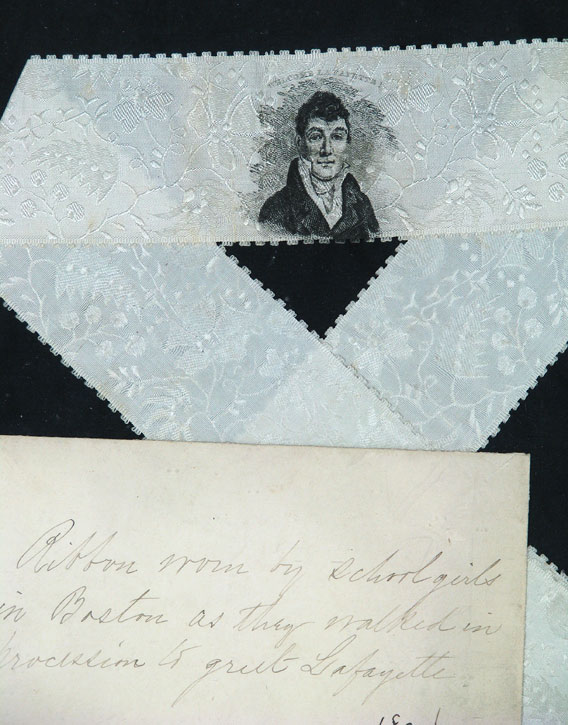 WELCOME LAFAYETTE
Ribbon worn by school girls
in Boston as they walked in
procession to greet Lafayette.